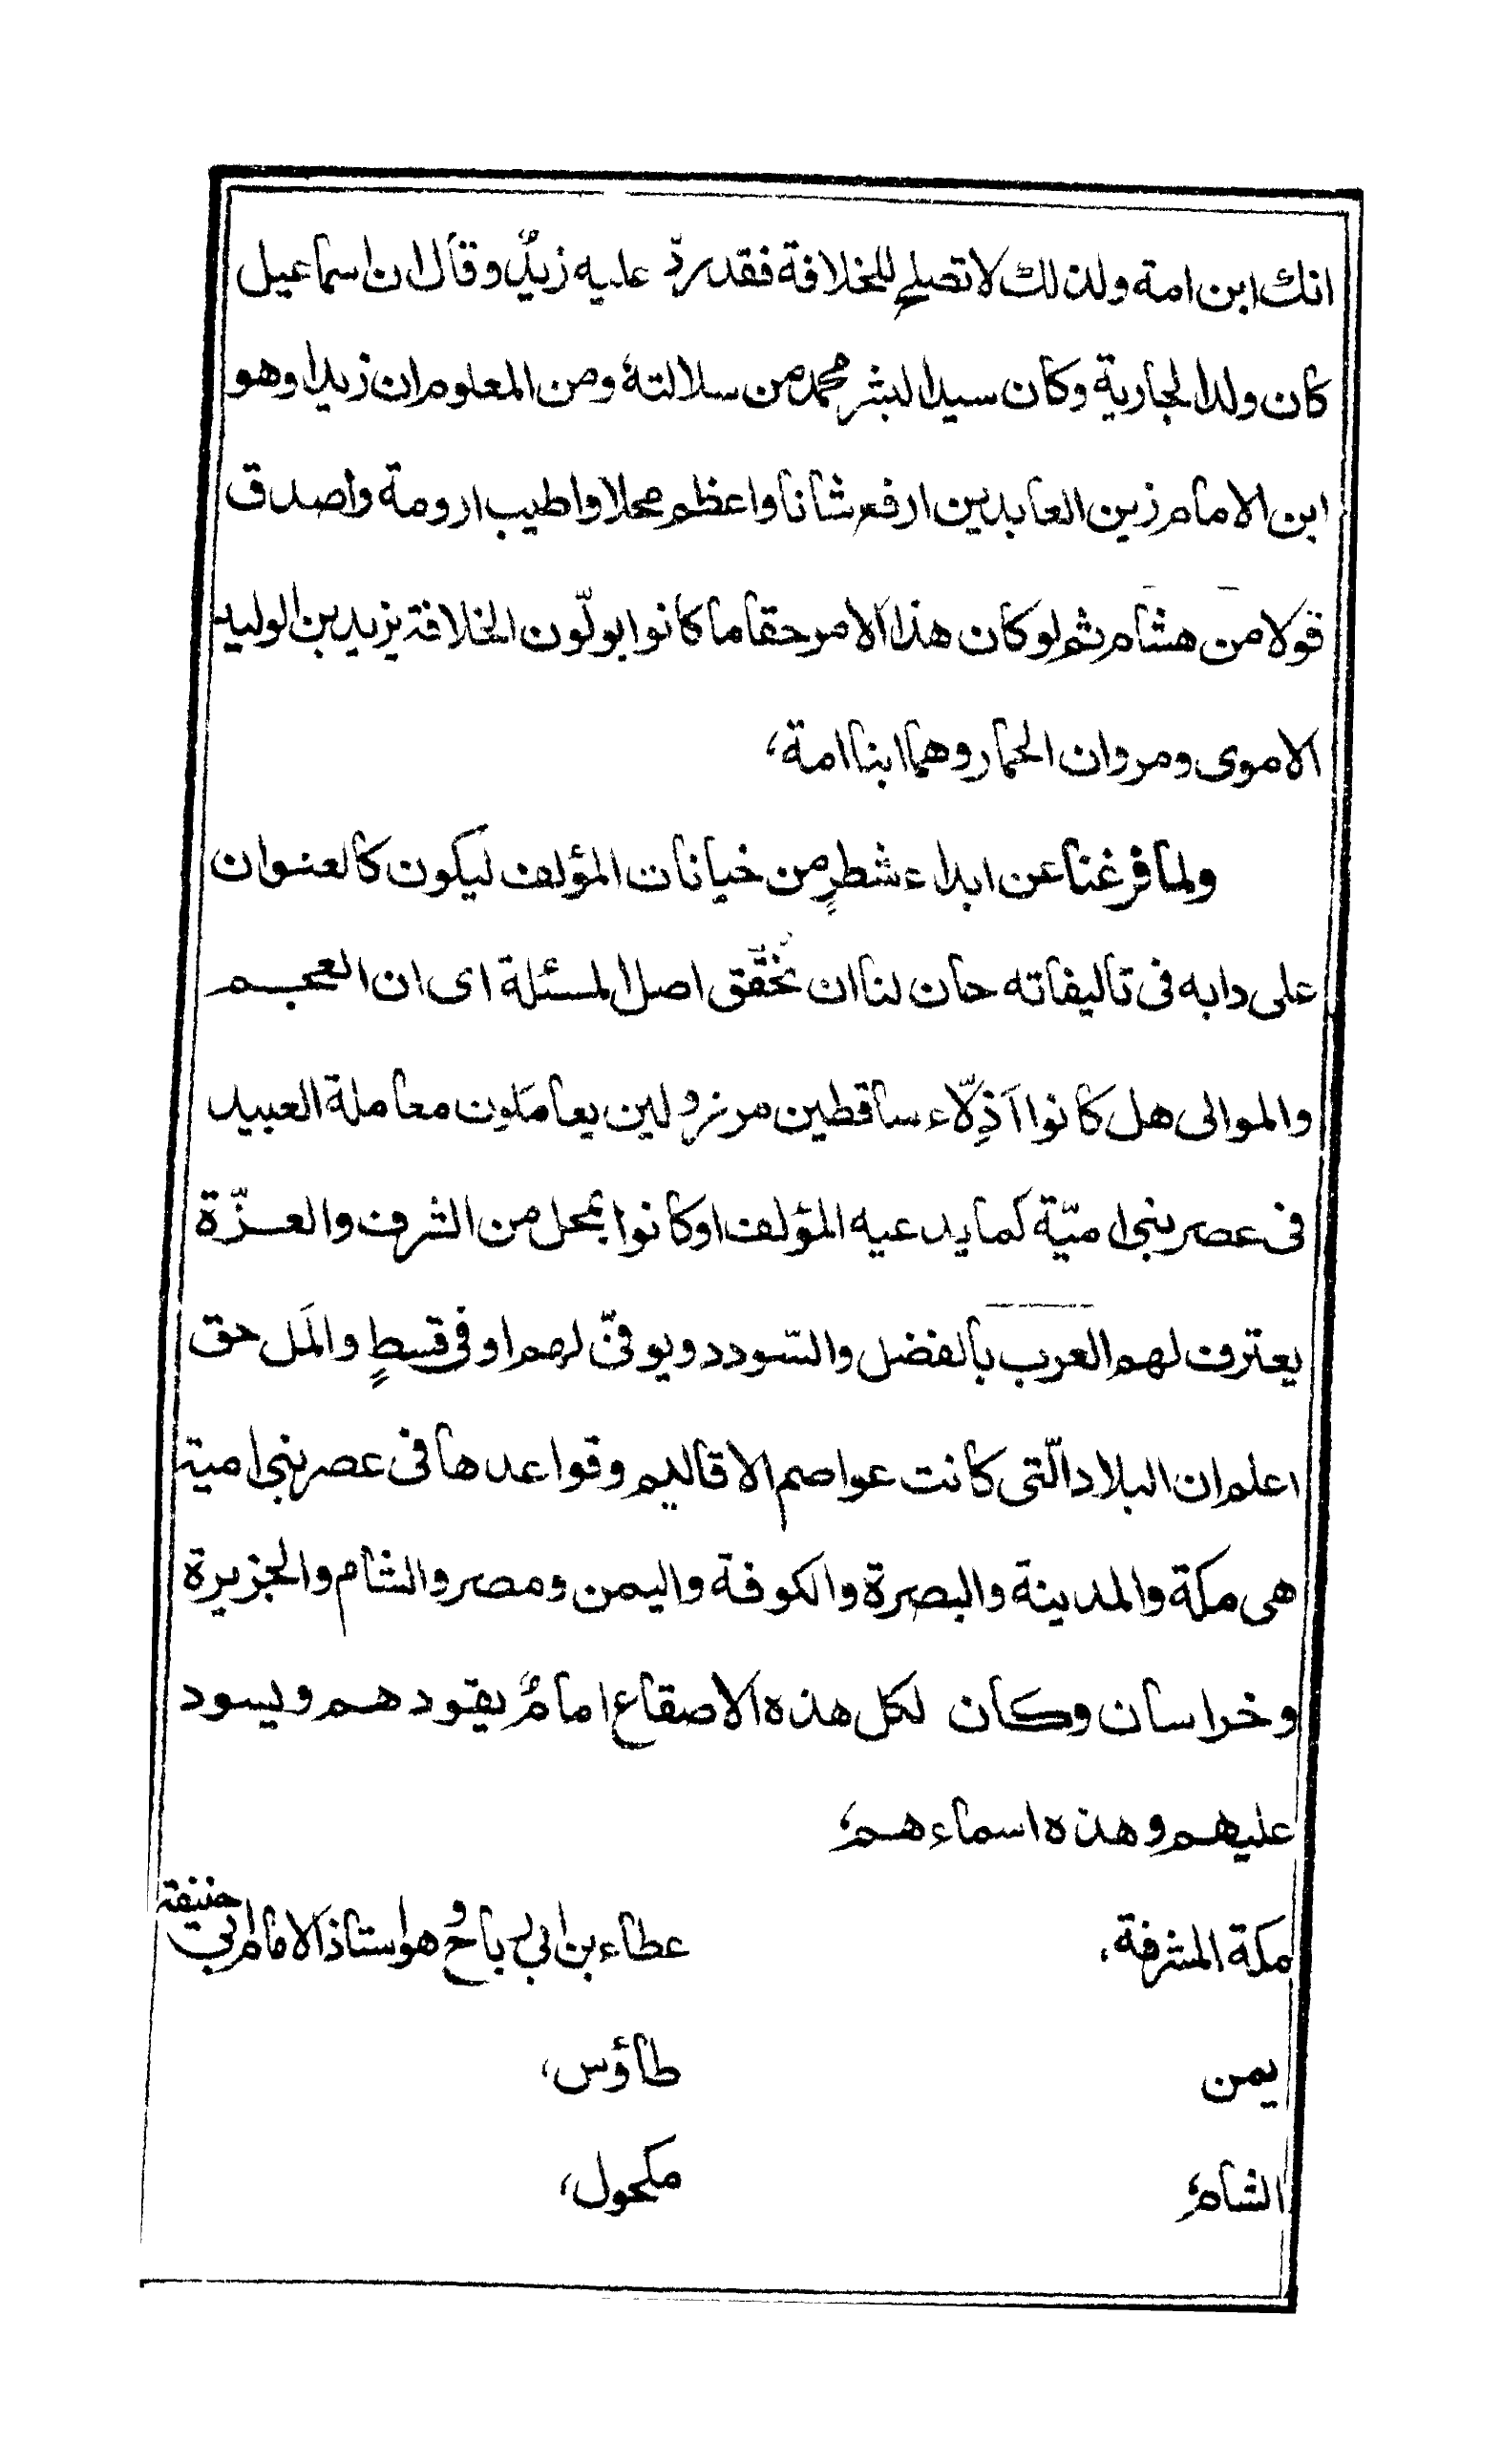 انك ابن امة ولذلك لا تصلح للخلافة فقد ردّ عليه زيدٌ وقال ان اسماعيل
كان ولدا لجارية وكان سيد البشر محمد من سلالته ومن المعلوم ان زيدا وهو
ابن الامام زين العابدين ارفع شانا واعظم محلا واطيب ارومة واصدق
قولا من هشام ثم لو كان هذا الامر حقا ما كانوا يولّون الخلافة يزيد بن الوليد
الاموى ومروان الحمار وهما ابنا امة،
ولما فرغنا عن ابداء شطرٍ من خيانات المؤلف ليكون كالعنوان
على دابه فى تاليفاته حان لنا ان نحقّق اصل المسئلة اى ان العجم
والموالى هل كانوا آذِلّاء ساقطين مرذولين يعاملون معاملة العبيد
فى عصر بنى اميّة كما يدعيه المؤلف اوكانوا بمحل من الشرف والعزّة
يعترف لهم العرب بالفضل والسّودد ويوفىّ لهم اوفى قسطٍ
اعلم ان البلاد الّتى كانت عواصم الاقاليم وقواعدها فى عصر بنى امية
هى مكة والمدينة والبصرة والكوفة واليمن ومصر والشام والجزيرة
وخراسان وكان لكل هذه الاصقاع امامٌ يقودهم ويسود
عليهم وهذه اسماءهم،
مكة المشرفة، عطاء بن ابى رباح وهو استاذ الامام ابى حنيفة
يمن طاؤس،
الشام، مكحول،